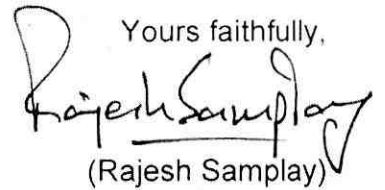 Yours faithfully,
Rajesh Samplay
(Rajesh Samplay)